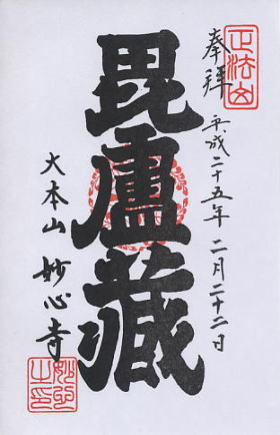 正法山
奉拝 平成二十五年 二月二十二日
毘盧藏
大本山 妙心寺